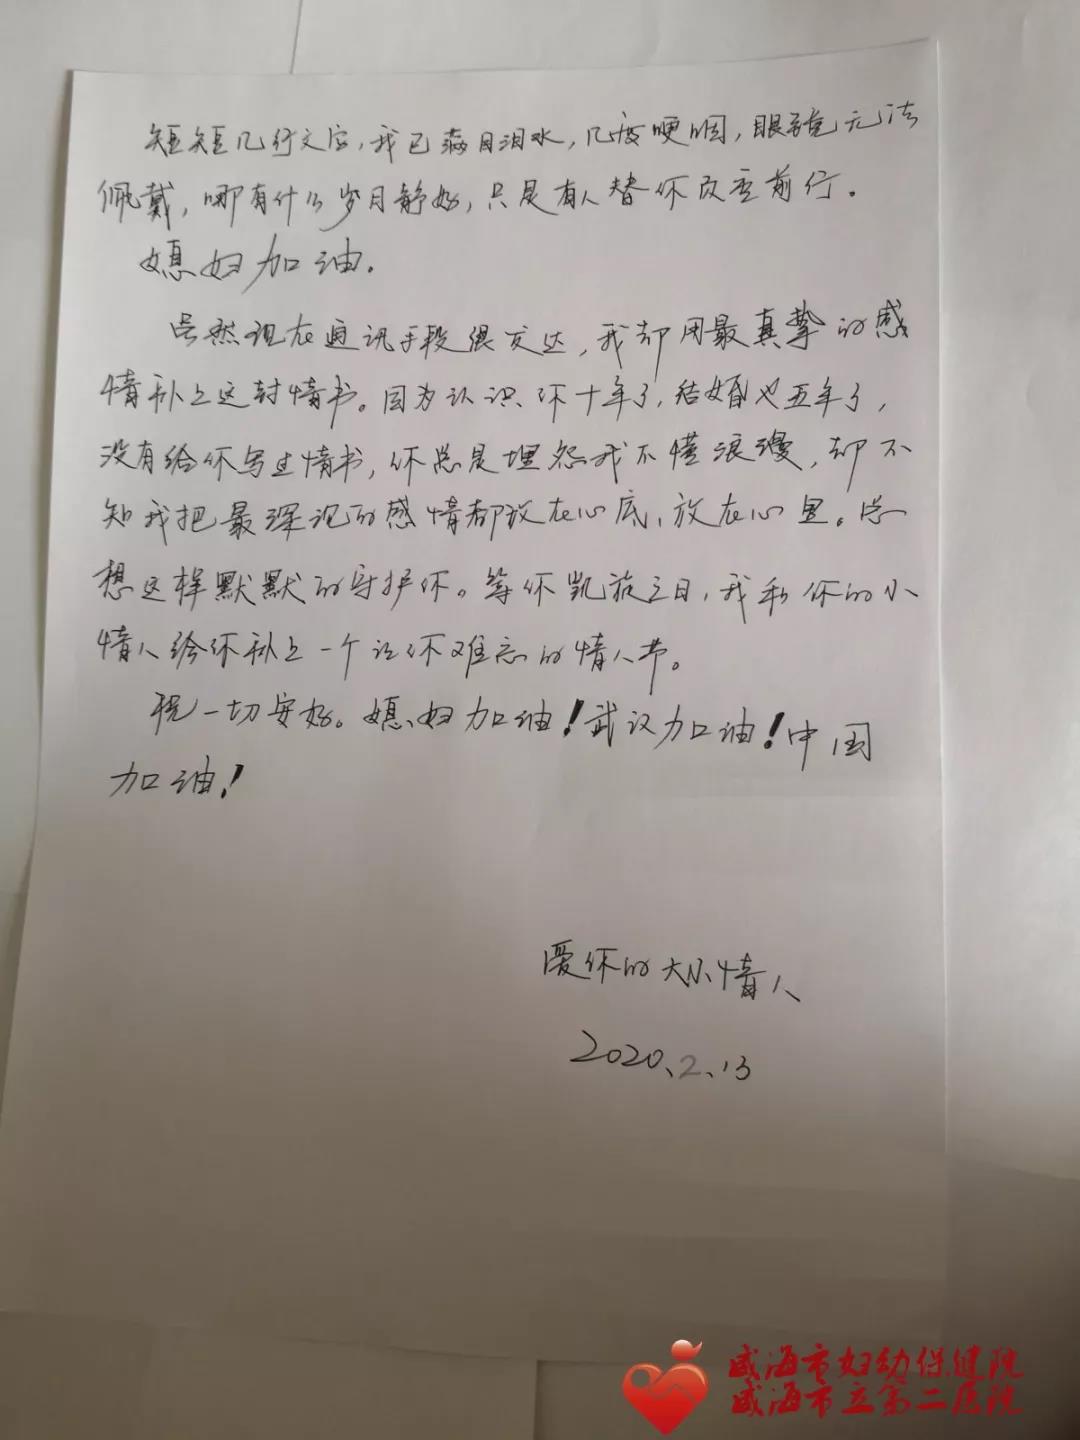 短短几行文字，我已满目泪水，几度哽咽，眼镜无法
佩戴，哪有什么岁月静好，只是有人替你改重前行。
媳妇加油。
虽然现在通讯手段很发达，我却用最真挚的感
情补上这封情书。因为认识你十年了，结婚也五年了，
没有给你写过情书，你总是埋怨我不懂浪漫，却不
知我把最深沉的感情都放在心底，放在心里。总
想这样默默的守护你。等你凯旋之日，我和你的小
情人给你补上一个让你难忘的情人节。
祝一切安好。媳妇加油！武汉加油！中国
加油！
爱你的大小情人
2020、2、13
威海市妇幼保健院
威海市立第二医院